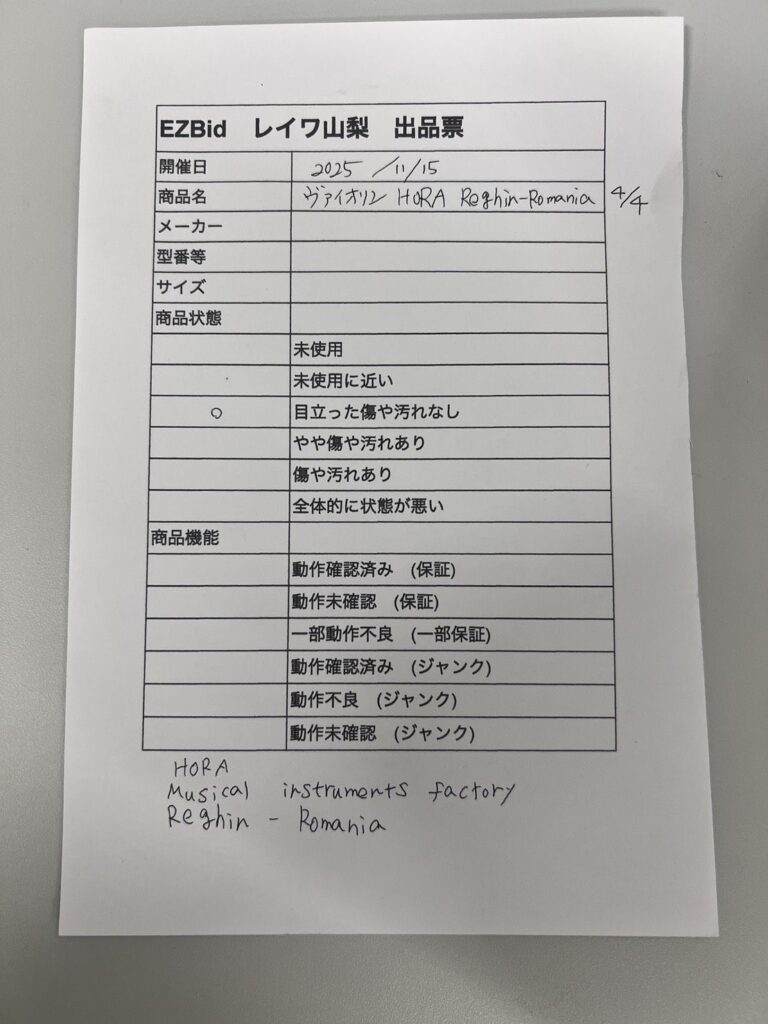 EZBid レイワ山梨 出品票
開催日 2025 /11/15
商品名 ヴァイオリン HORA Reghin-Romania 4/4
メーカー
型番等
サイズ
商品状態
未使用
未使用に近い
○ 目立った傷や汚れなし
やや傷や汚れあり
傷や汚れあり
全体的に状態が悪い
商品機能
動作確認済み (保証)
動作未確認 (保証)
一部動作不良 (一部保証)
動作確認済み (ジャンク)
動作不良 (ジャンク)
動作未確認 (ジャンク)
HORA
Musical instruments factory
Reghin - Romania